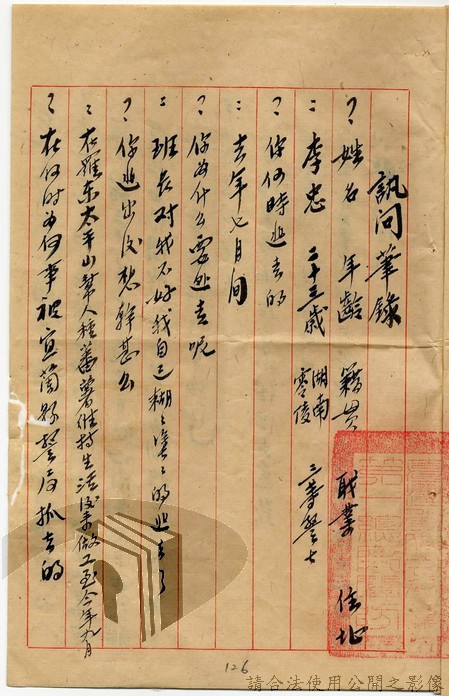 訊问筆錄
? 姓名 年齡 籍貫 职業 住址
: 李忠 二十三歲 湖南零陵 三等警士
? 你何時逃去的
: 去年七月间
? 你為什么要逃去呢
: 班長对我不好我自己糊々塗々的逃去了
? 你逃出後想幹甚么
: 在羅东太平山幫人種蕃薯維持生活後來做工至今年九月
? 在何时為何事被宜蘭縣警局抓去的
126
請合法使用公開之影像